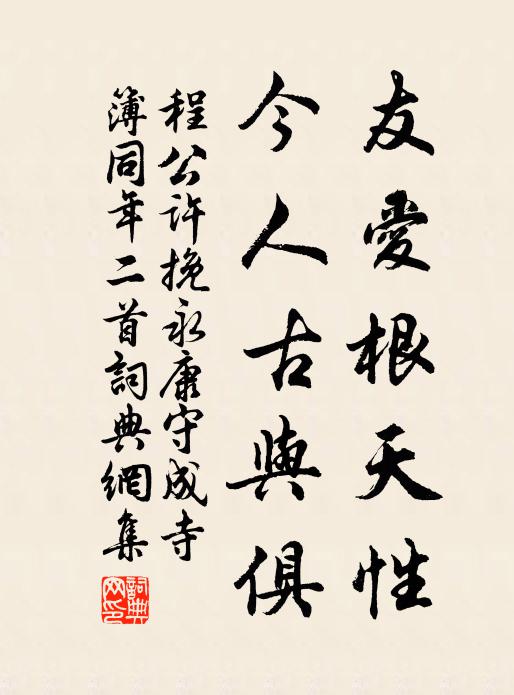 友愛根天性
今人古與俱
程公許挽永康守成寺
簿同年二首詞典網集
詞典网印